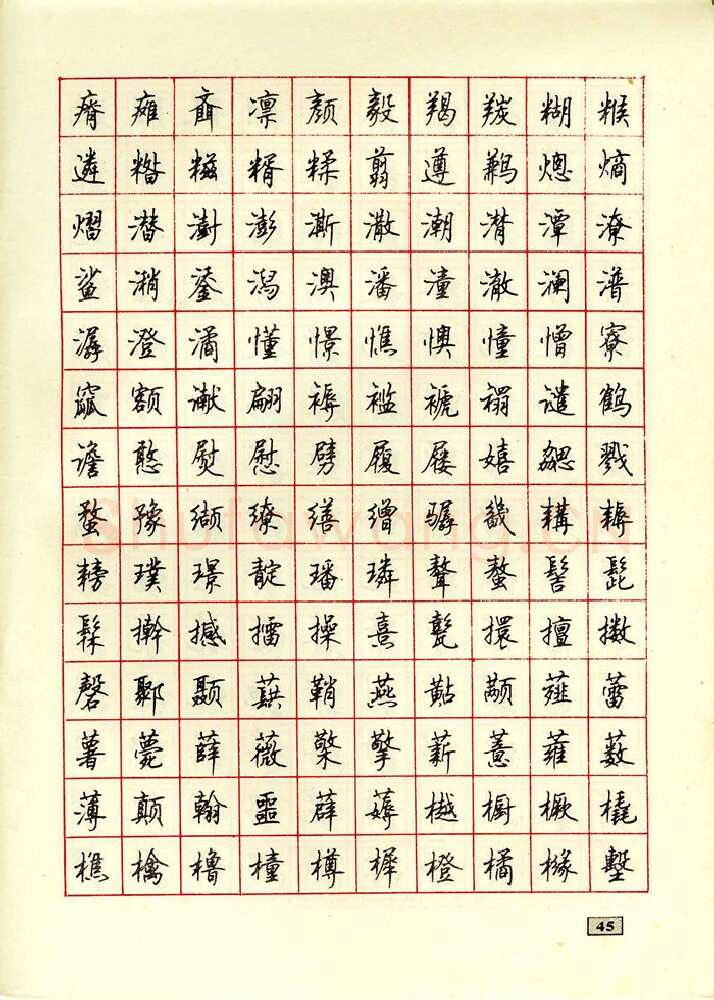 瘠瘫齑凛颜毅羯羰糊糇
遴糌糍糈糅翦遵鹣熜熵
熠潜澍澎澌潵潮潸潭潦
鲨潲鎏潟澳潘潼澈澜潽
潺澄潏懂憬憔懊憧憎寮
窳额谳翩褥褴褫禤谴鹤
谵憨熨慰劈履屦嬉勰戮
蝥豫缬缭缮缯骣畿耩耨
耪璞璟靛璠璘聱螯髻髭
髹擀撼擂操熹甏擐擅擞
磬鄹颞蕻鞘燕黇颟薤蕾
薯薨薛薇檠擎薪薏蕹薮
薄颠翰噩薜薅樾橱橛橇
樵檎橹橦樽樨橙橘橼墼
45